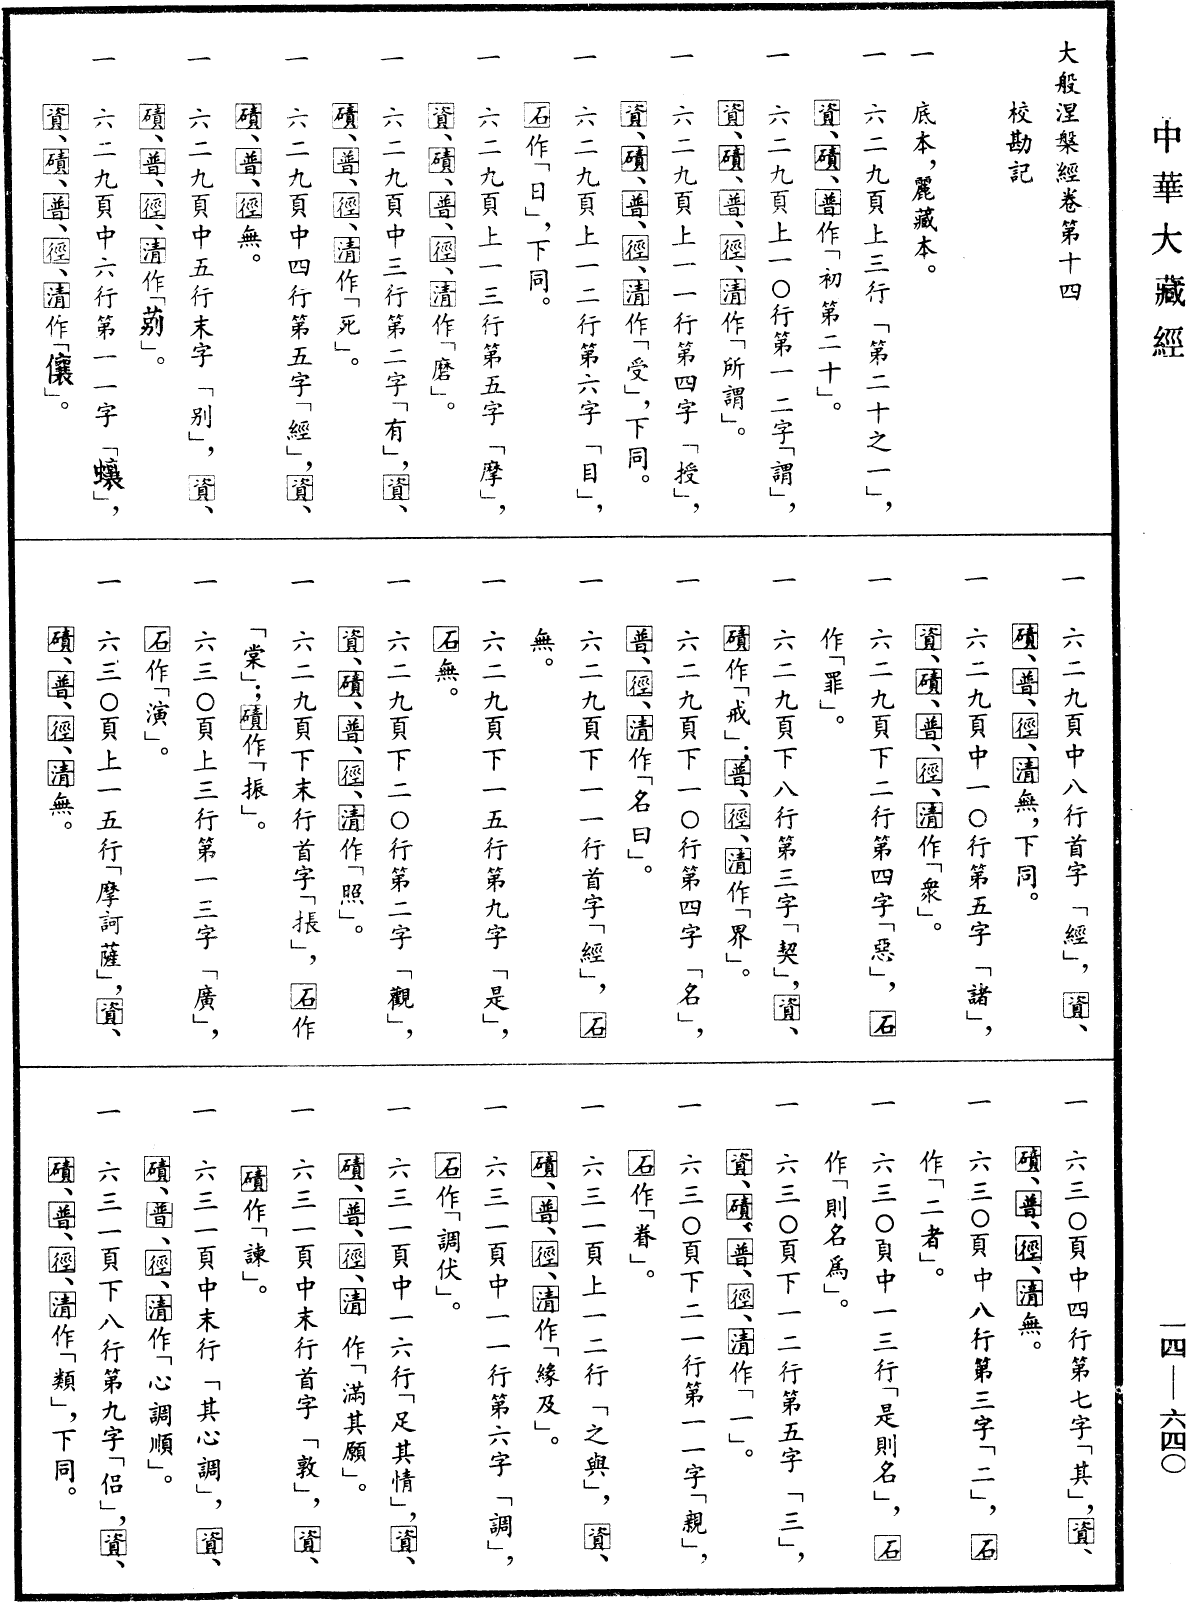 中華大藏經
大般涅槃經卷第十四
校勘記
一 底本，麗藏本。
一 六二九頁上三行「第二十之一」，
資、磧、普作「初第二十」。
一 六二九頁上一〇行第一二字「謂」，
資、磧、普、徑、清作「所謂」。
一 六二九頁上一一行第四字「授」，
資、磧、普、徑、清作「受」，下同。
一 六二九頁上一二行第六字「目」，
石作「日」，下同。
一 六二九頁上一三行第五字「摩」，
資、磧、普、徑、清作「磨」。
一 六二九頁中三行第二字「有」，資、
磧、普、徑、清作「死」。
一 六二九頁中四行第五字「經」，資、
磧、普、徑無。
一 六二九頁中五行末字「别」，資、
磧、普、徑、清作「莂」。
一 六二九頁中六行第一一字「蠰」，
資、磧、普、徑、清作「儴」。
一 六二九頁中八行首字「經」，資、
磧、普、徑、清無，下同。
一 六二九頁中一〇行第五字「諸」，
資、磧、普、徑、清作「衆」。
一 六二九頁下二行第四字「惡」，石
作「罪」。
一 六二九頁下八行第三字「契」，資、
磧作「戒」；普、徑、清作「界」。
一 六二九頁下一〇行第四字「名」，
普、徑、清作「名曰」。
一 六二九頁下一一行首字「經」，石
無。
一 六二九頁下一五行第九字「是」，
石無。
一 六二九頁下二〇行第二字「觀」，
資、磧、普、徑、清作「照」。
一 六二九頁下末行首字「掁」，石作
「棠」；磧作「振」。
一 六三〇頁上三行第一三字「廣」，
石作「演」。
一 六三〇頁上一五行「摩訶薩」，資、
磧、普、徑、清無。
一 六三〇頁中四行第七字「其」，資、
磧、普、徑、清無。
一 六三〇頁中八行第三字「二」，石
作「二者」。
一 六三〇頁中一三行「是則名」，石
作「則名爲」。
一 六三〇頁下一二行第五字「三」，
資、磧、普、徑、清作「一」。
一 六三〇頁下二一行第一一字「親」，
石作「眷」。
一 六三一頁上一二行「之與」，資、
磧、普、徑、清作「緣及」。
一 六三一頁中一一行第六字「調」，
石作「調伏」。
一 六三一頁中一六行「足其情」，資、
磧、普、徑、清作「滿其願」。
一 六三一頁中末行首字「敦」，資、
磧作「諫」。
一 六三一頁中末行「其心調」，資、
磧、普、徑、清作「心調順」。
一 六三一頁下八行第九字「侣」，資、
磧、普、徑、清作「類」，下同。
一四—六四〇